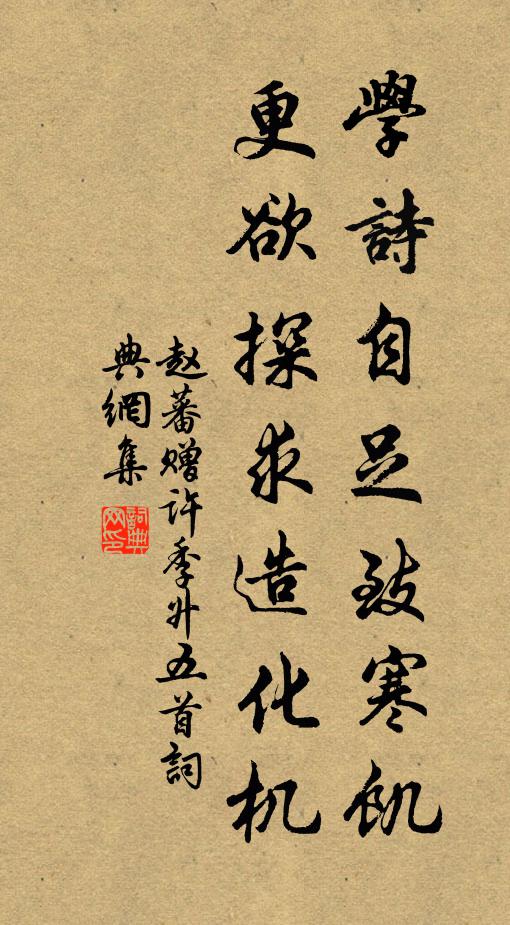 學詩自足致寒飢
更欲探求造化机
赵蕃赠許季升五首詞
典網集
詞典
网印